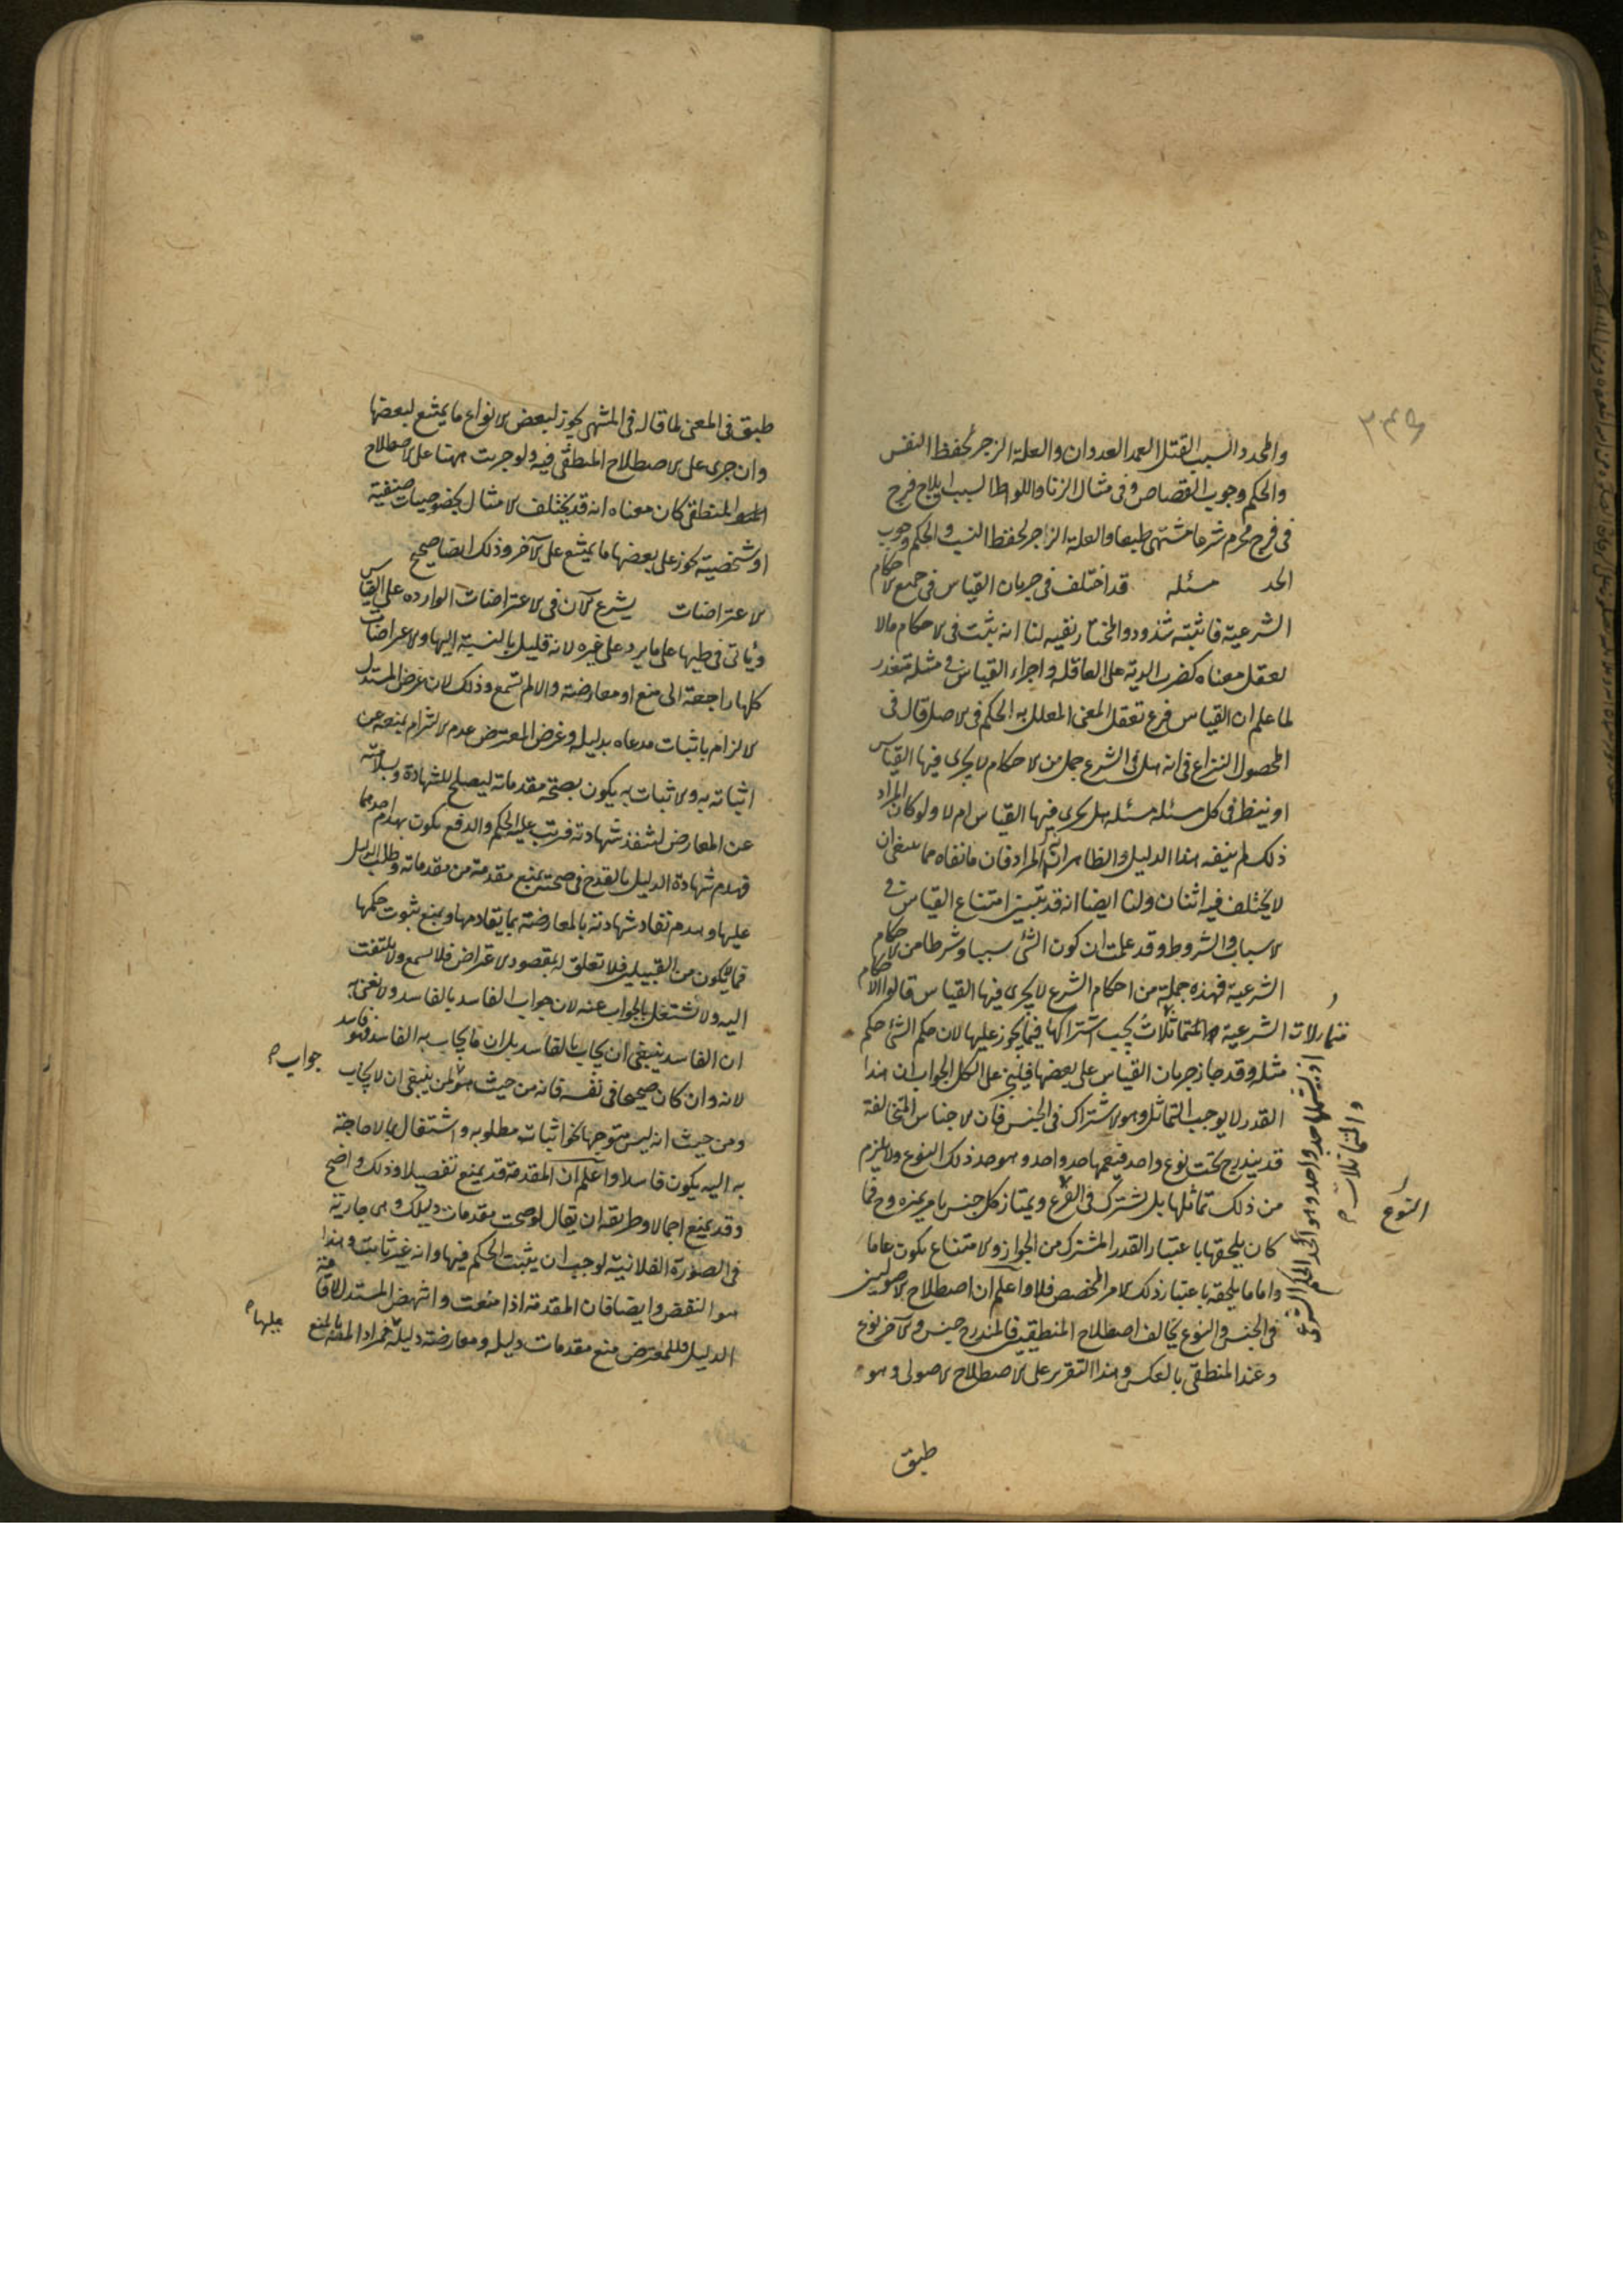 والمحدد السبب القتل العمد العدوان والعلة الزجر لحفظ النفس
والحكم وجوب القصاص وفي مثال الزنا واللواط السبب ايلاج فرج
في فرج محرم شرعا مشتهى طبعا والعلة الزاجر لحفظ النسب والحكم وجوب
الحد مسئله قد اختلف في جريان القياس في جميع الاحكام
الشرعية فاثبته شذوذ والمختار نفيه لنا انه يثبت في الاحكام مالا
يعقل معناه كضرب الدية على العاقله واجراء القياس في مثله متعذر
لما علم ان القياس فرع تعقل المعنى المعلل به الحكم في الاصل قال في
المحصول النزاع في انه هل في الشرع جمل من الاحكام لا يجرى فيها القياس
او ينظر في كل مسئله مسئله هل يجرى فيها القياس ام لا ولو كان المراد
ذلك لم ينفه هذا الدليل والظاهر انه المراد فان ما نفاه مما ينبغي ان
لا يختلف فيه اثنان ولنا ايضا انه قد تبين امتناع القياس في
الاسباب والشروط وقد علمت ان كون الشئ سببا وشرطا من الاحكام
الشرعية فهذه جملة من احكام الشرع لا يجرى فيها القياس قالوا الاحكام
الشرعية والمتماثلات يجب اشتراكها فيما يجوز عليها لان حكم الشئ حكم
مثله وقد جاز جريان القياس على بعضها فليجز على الكل الجواب ان هذا
القدر لا يوجب التماثل وهو الاشتراك في الجنس فان الاجناس المتخالفة
قد يندرج تحت نوع واحد فيعمها حد واحد وهو حد ذلك النوع ولا يلزم
من ذلك تماثلها بل تشترك في الفرع ويمتاز كل جنس بامر يميزه وح فما
كان يلحقها باعتبار القدر المشترك من الجواز والامتناع يكون عاما
واما ما يلحقه باعتبار ذلك الامر المخصص فلا واعلم ان اصطلاح الاصوليين
في الجنس والنوع يخالف اصطلاح المنطقيين فالمندرج جنس والآخر نوع
وعند المنطقي بالعكس وهذا التقرير على الاصطلاح الاصولى وهو
طبق
متماثلات
اذ يشملها حد واحد وهو الحد الحكم الشرعي
والمتماثلات
النوع
طبق في المعنى لما قاله في المنتهى يجوز لبعض الانواع ما يمتنع لبعضها
وان جرى على الاصطلاح المنطقي فيه ولو جريت ههنا على الاصطلاح
المنطقي كان معناه انه قد يختلف الامثال بخصوصيات صنفية
او شخصية يجوز على بعضها ما يمتنع على الآخر وذلك ايضا صحيح
الاعتراضات يشرع الآن في الاعتراضات الوارده على القياس
ويأتى في طيها على ما يرد على غيره لانه قليل بالنسبة اليها والاعراضات
كلها راجعة الى منع او معارضة والا لم تسمع وذلك لان غرض المستدل
الالزام باثبات مدعاه بدليله وغرض المعترض عدم الالتزام بمنعه عن
اثباته به والاثبات به يكون بصحة مقدماته ليصلح للشهادة وبسلامته
عن المعارض لتنفذ شهادته فرتب عليه الحكم والدفع يكون بهدم احدهما
فهدم شهادة الدليل بالقدح في صحته بمنع مقدمة من مقدماته وطلب الدليل
عليها وهدم نفاذ شهادته بالمعارضة بما يقاومها ويمنع ثبوت حكمها
فما لا يكون من القبيلين فلا تعلق له بمقصود الاعتراض فلا يسمع ولا يلتفت
اليه ولا نشتغل بالجواب عنه لان جواب الفاسد بالفاسد ولا نعنى به
ان الفاسد ينبغي ان يجاب بالفاسد بل ان ما يجاب به الفاسد فهو فاسد
لانه وان كان صحيحا في نفسه فانه من حيث هو لمن ينبغى ان لا يجاب
ومن حيث انه ليس متوجها نحو اثبات مطلوبه واشتغال بما لا حاجة
به اليه يكون فاسدا واعلم ان المقدمة قد يمنع تفصيلا وذلك واضح
وقد يمنع اجمالا وطريقه ان يقال لو صحت مقدمات دليلك وهى جارية
في الصورة الفلانية لوجب ان يثبت الحكم فيها وانه غير ثابت وهذا
هو النقض وايضا فان المقدمة اذا منعت وانتهض المستدل لاقامة
الدليل فللمعترض منع مقدمات دليله ومعارضة دليله فمراد المصنف بالمنع
جواب
عليها